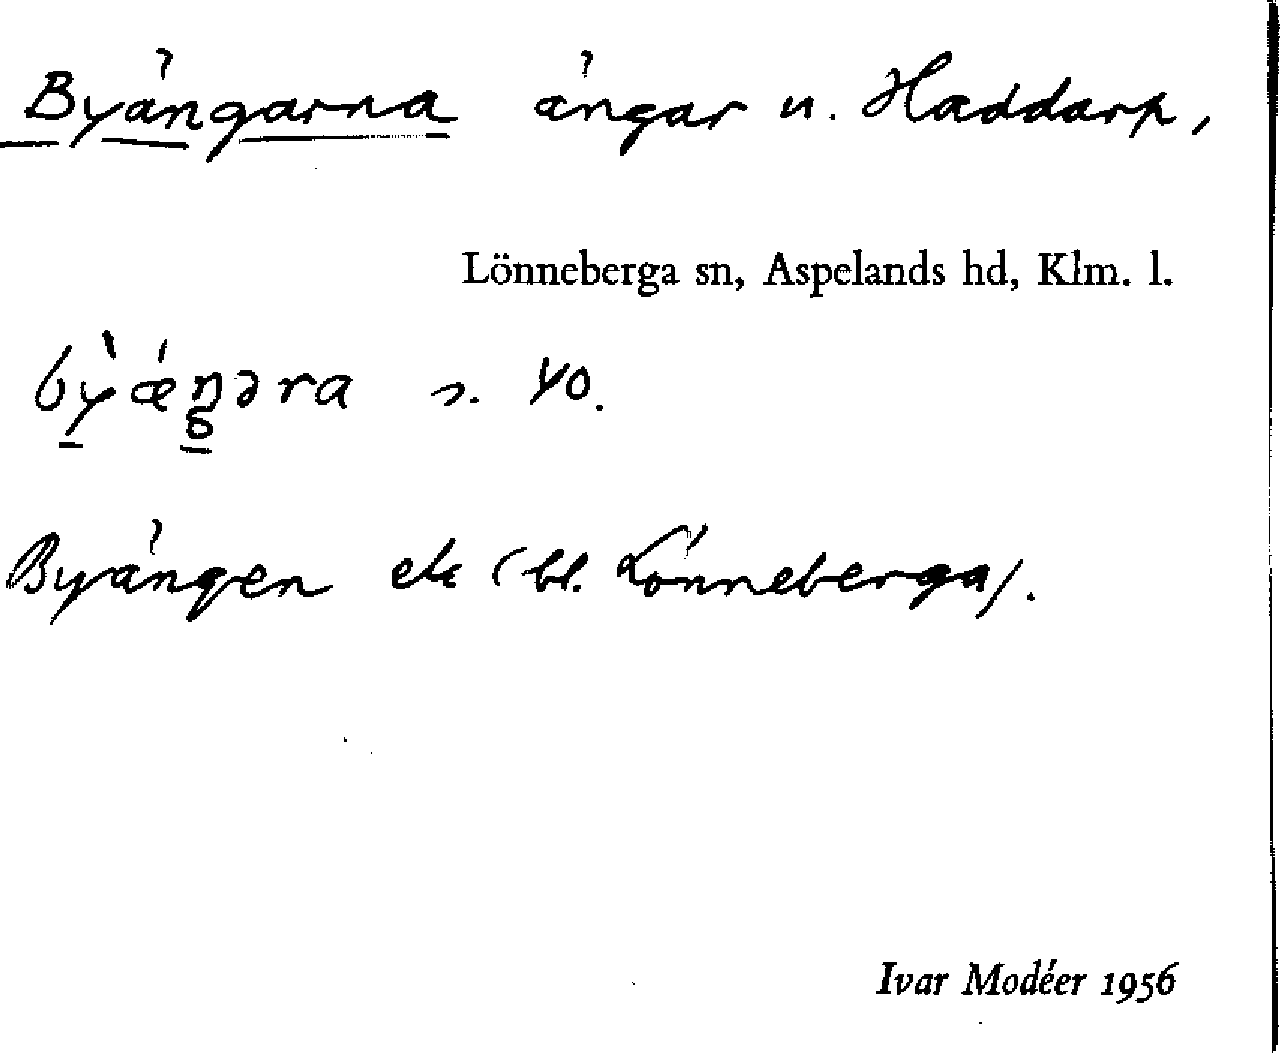 Byängarna ängar u. Haddarp,
Lönneberga sn, Aspelands hd, Klm. l.
bỳǽŋəra s. 40.
Byängen ek (bl. Lönneberga).
Ivar Modéer 1956